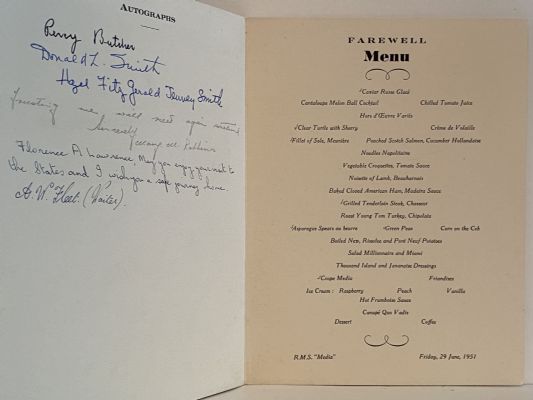 AUTOGRAPHS
Perry Butcher
Donald L. Smith
Hazel Fitz Gerald Tenney Smith
Trusting we shall meet again
Sincerely
Florence A Lawrence. May you enjoy your visit to
the States and I wish you a safe journey home.
A. W. Fleet. (Waiter).
FAREWELL
Menu
√Caviar Russe Glacé
Cantaloupe Melon Ball Cocktail Chilled Tomato Juice
Hors d'Œuvre Variés
√Clear Turtle with Sherry Crème de Volaille
√Fillet of Sole, Meunière Poached Scotch Salmon, Cucumber Hollandaise
Noodles Napolitaine
Vegetable Croquettes, Tomato Sauce
Noisette of Lamb, Beauharnais
Baked Cloved American Ham, Madeira Sauce
√Grilled Tenderloin Steak, Chasseur
Roast Young Tom Turkey, Chipolata
√Asparagus Spears au beurre √Green Peas Corn on the Cob
Boiled New, Rissolee and Pont Neuf Potatoes
Salad Millionnaire and Miami
Thousand Island and Javanaise Dressings
√Coupe Media Friandises
Ice Cream : Raspberry Peach Vanilla
Hot Framboise Sauce
Canapé Quo Vadis
Dessert Coffee
R.M.S. "Media" Friday, 29 June, 1951